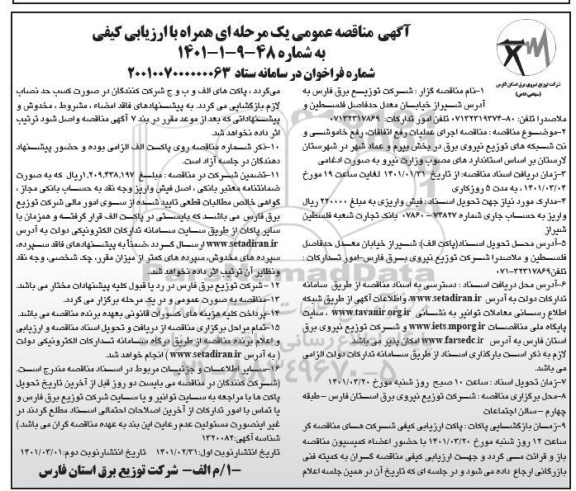 آگهی مناقصه عمومی یک مرحله ای همراه با ارزیابی کیفی
به شماره ۴۸-۹-۱-۱۴۰۱
شماره فراخوان در سامانه ستاد ۲۰۰۱۰۰۷۰۰۰۰۰۰۶۳
شرکت توزیع نیروی برق استان فارس
(سهامی خاص)
۱-نام مناقصه گزار : شرکت توزیع برق فارس به
آدرس شیراز خیابان معدل حدفاصل فلسطین و
ملاصدرا تلفن: ۸۰-۰۷۱۳۲۳۱۹۳۷۴ تلفن امور تدارکات: ۰۷۱۳۲۳۱۷۸۶۹
۲-موضوع مناقصه: مناقصه اجرای عملیات رفع اتفاقات، رفع خاموشی و
نت شبکه های توزیع نیروی برق در بخش بیرم و عماد شهر در شهرستان
لارستان بر اساس استاندارد های مصوب وزارت نیرو به صورت ادغامی
۳-زمان دریافت اسناد مناقصه: از تاریخ ۱۴۰۱/۰۱/۳۱ لغایت ساعت ۱۹ مورخ
۱۴۰۱/۰۳/۰۴، به مدت ۵ روزکاری
۴-مدارک مورد نیاز جهت تحویل اسناد: فیش واریزی به مبلغ ۲۲۰۰۰۰ ریال
واریز به حساب جاری شماره ۷۳۸۲۷-۰۷۸۶۰ بانک تجارت شعبه فلسطین
شیراز
۵-آدرس محل تحویل اسناد(پاکت الف): شیراز خیابان معدل حدفاصل
فلسطین و ملاصدرا شرکت توزیع نیروی برق فارس-امور تدارکات :
تلفن:۳۲۳۱۷۸۶۹-۰۷۱
۶-آدرس محل دریافت اسناد : دسترسی به اسناد مناقصه از طریق سامانه
تدارکات دولت به آدرس www.setadiran.ir، واطلاعات آگهی از طریق شبکه
اطلاع رسانی معاملات توانیر به نشانی www.tavanir.org.ir ، سایت
پایگاه ملی مناقصات www.iets.mporg.ir و شرکت توزیع نیروی برق
استان فارس به آدرس www.farsedc.ir امکان پذیر می باشد
لازم به ذکر است بارگذاری اسناد از طریق سامانه تدارکات دولت الزامی
می باشد.
۷-زمان تحویل اسناد : ساعت ۱۰ صبح روز شنبه مورخ ۱۴۰۱/۰۳/۲۰
۸-محل برگزاری مناقصه : شرکت توزیع نیروی برق استان فارس - طبقه
چهارم - سالن اجتماعات
۹-زمان بازگشایی پاکات : پاکت ارزیابی کیفی شرکت های مناقصه گر
ساعت ۱۲ روز شنبه مورخ ۱۴۰۱/۰۳/۲۰ با حضور اعضاء کمیسیون مناقصه
باز و قرائت می گردد و جهت ارزیابی کیفی مناقصه گران به کمیته فنی
بازرگانی ارجاع داده می شود و در جلسه ای که تاریخ آن در همین جلسه اعلام
میگردد، پاکت های الف و ب و ج شرکت کنندگان در صورت کسب حد نصاب
لازم بازگشایی می گردد. به پیشنهادهای فاقد امضاء ، مشروط ، مخدوش و
پیشنهاداتی که بعد از موعد مقرر در بند ۷ آگهی مناقصه واصل شود ترتیب
اثر داده نخواهد شد.
۱۰-ذکر شماره مناقصه روی پاکت الف الزامی بوده و حضور پیشنهاد
دهندگان در جلسه آزاد است.
۱۱-تضمین شرکت در مناقصه : مبلغ ۱,۲۰۹,۴۳۸,۱۹۷ریال که به صورت
ضمانتنامه معتبر بانکی ، اصل فیش واریز وجه نقد به حساب بانکی مجاز ،
گواهی خالص مطالبات قطعی تایید شده از سوی امور مالی شرکت توزیع
برق فارس می باشد که بایستی در پاکت الف قرار گرفته و همزمان با
سایر پاکات از طریق سایت سامانه تدارکات الکترونیکی دولت به آدرس
www.setadiran.ir ارسال گردد ،ضمناً به پیشنهادهای فاقد سپرده،
سپرده های مخدوش، سپرده های کمتر از میزان مقرر، چک شخصی، وجه نقد
ونظایر آن ترتیب اثر داده نخواهد شد.
۱۲- شرکت توزیع برق فارس در رد یا قبول کلیه پیشنهادات مختار می باشد.
۱۳-مناقصه به صورت عمومی و در یک مرحله برگزار می گردد.
۱۴-پرداخت کلیه هزینه های کسورات قانونی بعهده برنده مناقصه می باشد.
۱۵-تمام مراحل برگزاری مناقصه از دریافت و تحویل اسناد مناقصه و ارزیابی
و اعلام برنده مناقصه از طریق درگاه سامانه تدارکات الکترونیکی دولت
( به آدرس www.setadiran.ir ) انجام خواهد شد.
۱۶-سایر اطلاعات و جزئیات مربوط در اسناد مناقصه مندرج است.
(شرکت کنندگان در مناقصه می بایست دو روز قبل از آخرین تاریخ تحویل
پاکت ها با مراجعه به سایت توانیر و یا سایت شرکت توزیع برق فارس و
یا تماس با امور تدارکات از آخرین اصلاحات احتمالی اسناد مطلع گردند در
غیر اینصورت مسئولیت عدم رعایت این بند به عهده مناقصه گران می باشد.)
شناسه آگهی:۱۳۲۰۰۸۲
تاریخ انتشارنوبت اول:۱۴۰۱/۰۲/۳۱ تاریخ انتشارنوبت دوم:۱۴۰۱/۰۳/۰۱
۱/م الف- شرکت توزیع برق استان فارس